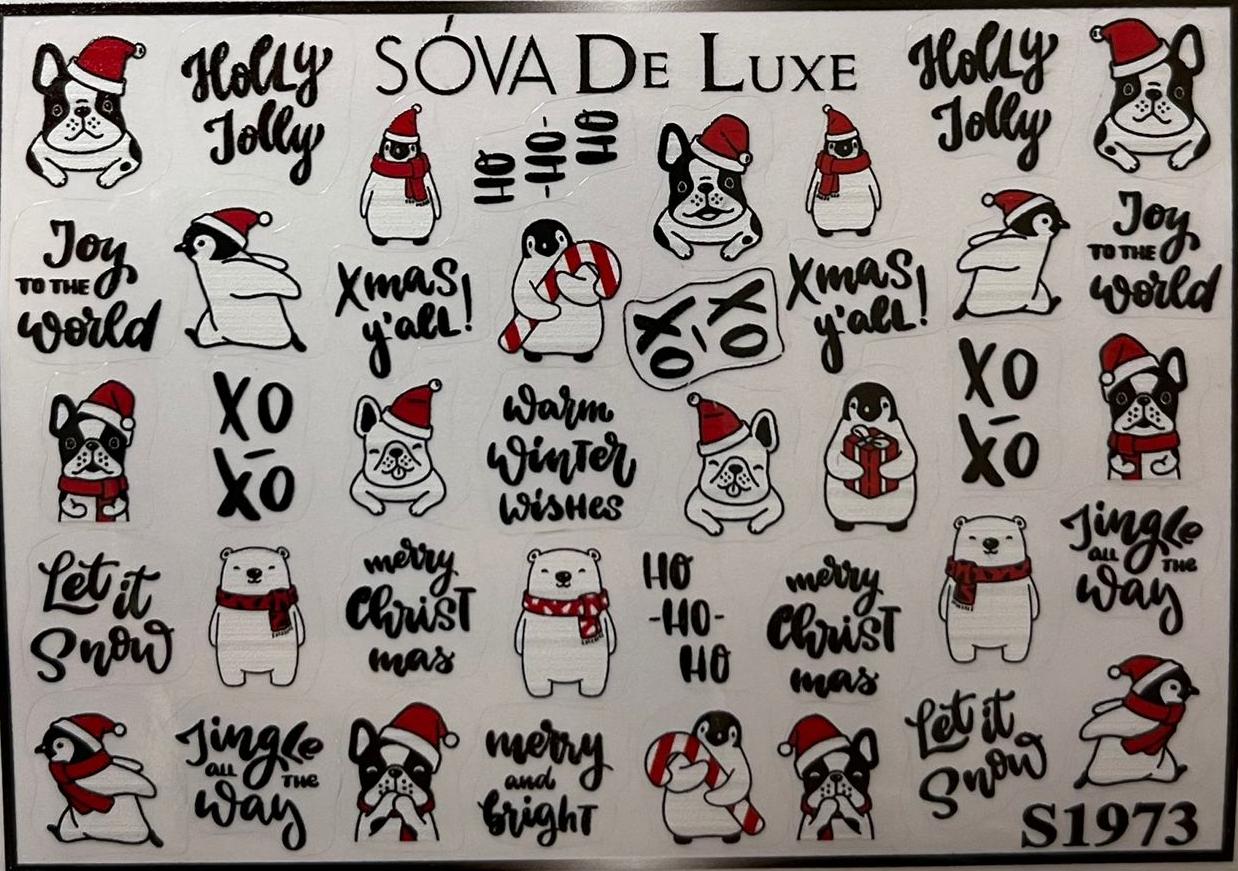 SÓVA DE LUXE
Holly
Jolly
HO
-HO-
HO
Holly
Jolly
Joy
TO THE
world
Xmas
y'all!
XO
-
XO
Xmas
y'all!
Joy
TO THE
world
XO
-
XO
warm
winter
wishes
XO
-
XO
Let it
Snow
merry
Christ
mas
HO
-HO-
HO
merry
Christ
mas
Jingle
ALL THE
way
Jingle
ALL THE
way
merry
and
bright
Let it
Snow
S1973